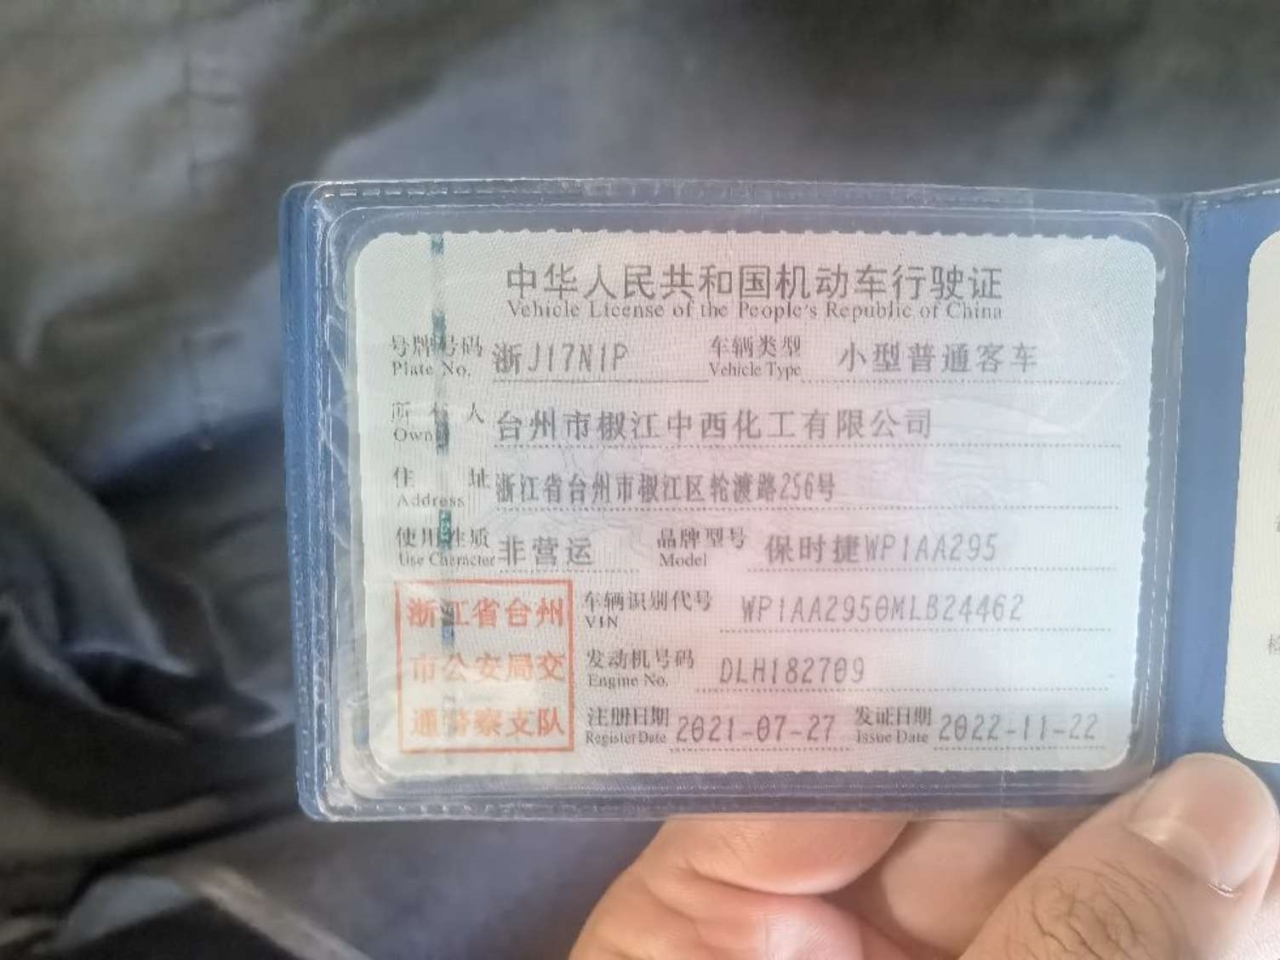 中华人民共和国机动车行驶证
Vehicle License of the People's Republic of China
号牌号码 浙J17N1P 车辆类型 小型普通客车
Plate No. Vehicle Type
所有人 台州市椒江中西化工有限公司
Owner
住址 浙江省台州市椒江区轮渡路256号
Address
使用性质 非营运 品牌型号 保时捷WP1AA295
Use Character Model
浙江省台州 车辆识别代号 WP1AA2950MLB24462
VIN
市公安局交 发动机号码 DLH182709
Engine No.
通警察支队 注册日期 2021-07-27 发证日期 2022-11-22
Register Date Issue Date